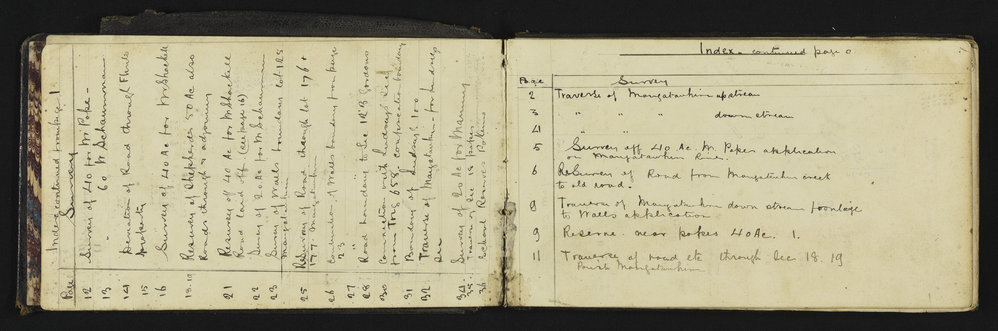 Index continued page 0
Page Survey
2 Traverse of Mangatawhiri upstream
3 " " down stream
4 " "
5 Survey off 40 Ac. Mr Pokes application
on Mangatawhiri River.
6 ReSurvey of Road from Mangatawhiri creek
to old road.
8 Traverse of Mangatawhiri down stream from page
to Walls application
9 Reserve near pokes 40 Ac. 1.
11 Traverse of road etc through Sec 18. 19
Parish Mangatawhiri
Index continued from page 1
Page Survey
12 Survey of 40 for Mr Poke
13 " 60 Mr Schaumman
14 Deviation of Road through
15 property
16 Survey of 40 Ac for Mr Shackell
18.19 Resurvey of Shepherds 50 Ac also
Roads through & adjoining
21 Resurvey of 40 Ac for Mr Shackell
Road laid off (see page 16)
22 Survey of 20 Ac for Mr Schaumman
23 Survey of Walls boundary lot 128
Mangatawhiri
25 ReSurvey of Road through lot 176 &
177. Mangatawhiri
26 Continuation of Walls boundary from page
23
27 "
28 Road boundary to Sec 12B Gordons
30 Connection with Lindsays Sec
from Trig 658. confiscation boundary
31 Boundary of Lindsays 100
32 Traverse of Mangatawhiri
Sec
34. Survey of 20 Ac for Manning
35. Traverse of Sec 19
36 School Reserve Pokeno